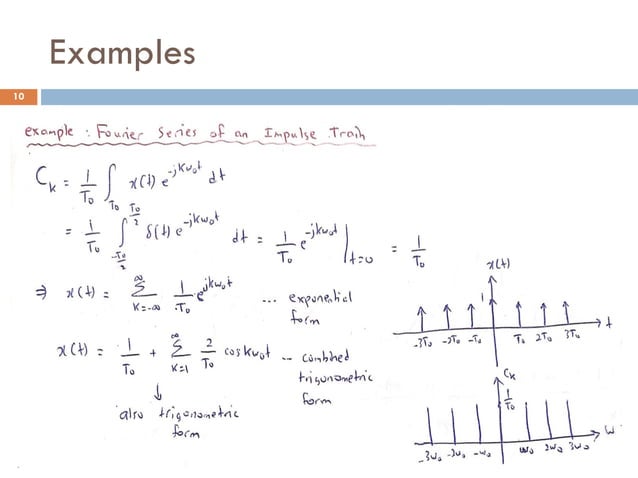 Examples
10
example : Fourier Series of an Impulse Train
C_k = 1/T₀ ∫_T₀ x(t) e^(-jkω₀t) dt
= 1/T₀ ∫_(-T₀/2)^(T₀/2) δ(t) e^(-jkω₀t) dt = 1/T₀ e^(-jkω₀t) |_(t=0) = 1/T₀
⇒ x(t) = ∑_(k=-∞)^∞ 1/T₀ · e^(jkω₀t) ... exponential form
x(t) = 1/T₀ + ∑_(k=1)^∞ 2/T₀ cos kω₀t ... combined trigonometric form
↓ ↓
also trigonometric
form
x(t)
1
-3T₀ -2T₀ -T₀ T₀ 2T₀ 3T₀ t
C_k
1/T₀
-3ω₀ -3ω₀ -ω₀ ω₀ 2ω₀ 3ω₀ ω